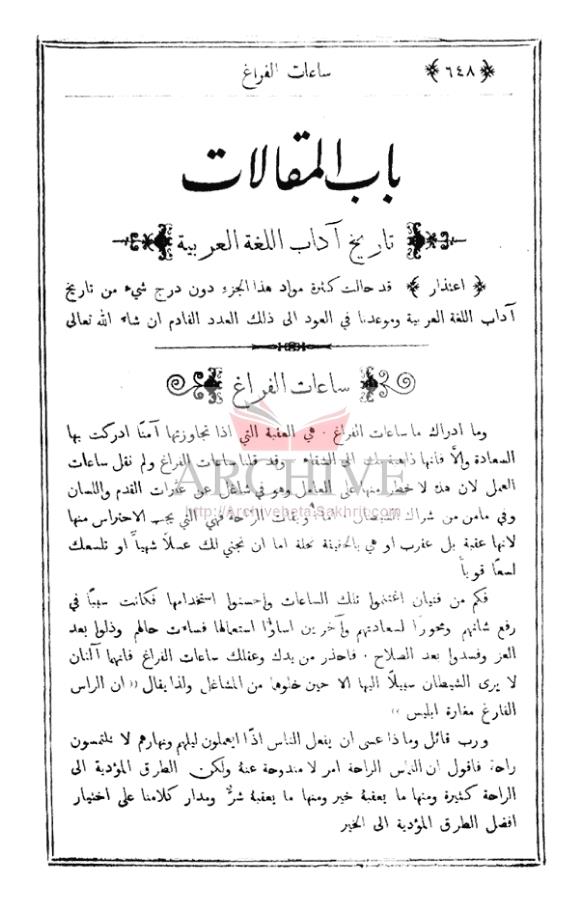 ﴿ ٦٤٨ ﴾ ساعات الفراغ
باب المقالات
تاريخ آداب اللغة العربية
﴿ اعتذار ﴾ قد حالت كثرة مواد هذا الجزء دون درج شيء من تاريخ
آداب اللغة العربية وموعدنا في العود الى ذلك العدد القادم ان شاء الله تعالى
ساعات الفراغ
وما ادراك ما ساعات الفراغ . هي العقبة التي اذا تجاوزتها آمنًا ادركت بها
السعادة والاّ فانها ذاهبة بك الى الشقاء وقد قلنا ساعات الفراغ ولم نقل ساعات
العمل لان هذه لا خطر منها على العامل وهو في شاغل عن عثرات القدم واللسان
وفي مامن من شراك الشيطان . اما اويقات الراحة فهي التي يجب الاحتراس منها
لانها عقبة بل عقرب او هي بالحقيقة نحلة اما ان تجني لك عسلاً شهياً او تلسعك
لسعًا قوياً
فكم من فتيان اغتنموا تلك الساعات واحسنوا استخدامها فكانت سببًا في
رفع شانهم ومحورًا لسعادتهم وآخرين اساؤا استعمالها فساءت حالهم وذلوا بعد
العز وفسدوا بعد الصلاح . فاحذر من يدك وعقلك ساعات الفراغ فانهما آلتان
لا يرى الشيطان سبيلاً اليها الا حين خلوها من المشاغل ولذا يقال « ان الراس
الفارغ مغارة ابليس »
ورب قائل وماذا عسى ان يفعل الناس اذًا ايعملون ليلهم ونهارهم لا يلتمسون
راحة فاقول ان التماس الراحة امر لا مندوحة عنه ولكن الطرق المؤدية الى
الراحة كثيرة ومنها ما يعقبه خير ومنها ما يعقبه شرٌّ ومدار كلامنا على اختيار
افضل الطرق المؤدية الى الخير
ARCHIVE
http://Archivebeta.Sakhrit.com